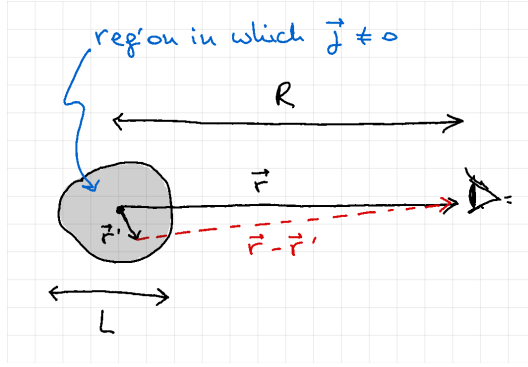 region in which j⃗ ≠ 0
R
r⃗
r⃗'
r⃗ - r⃗'
L